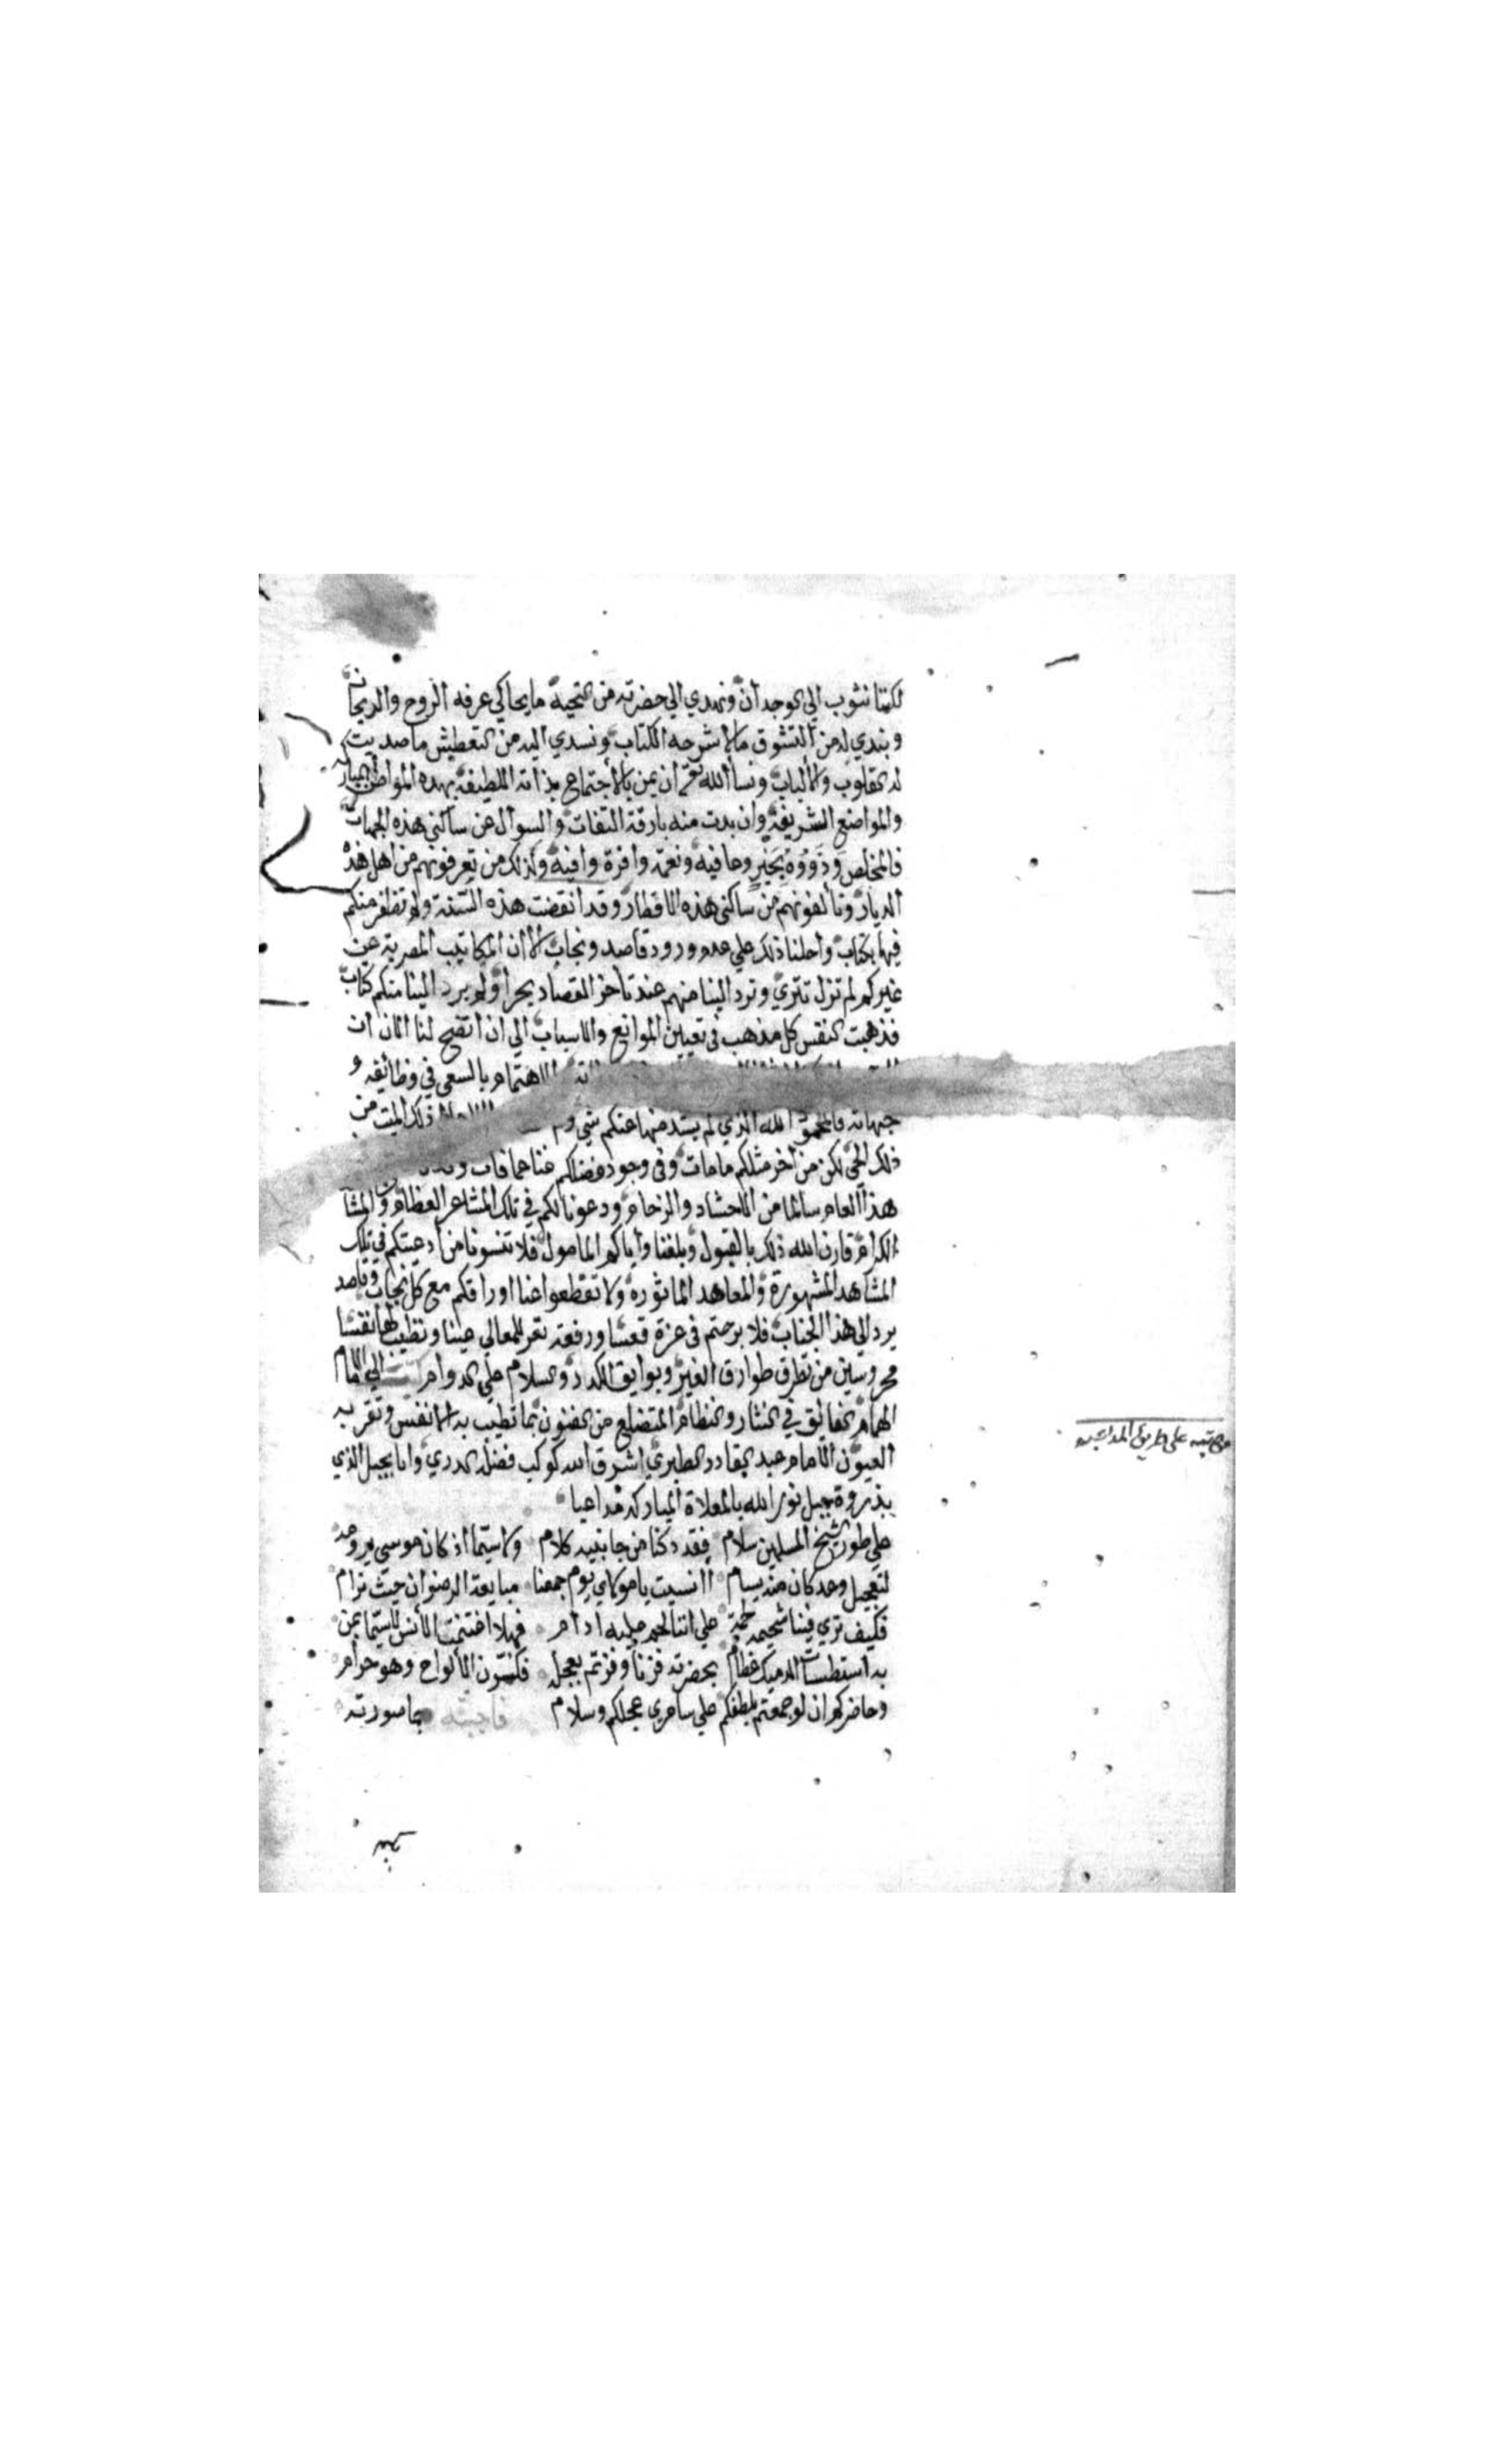 لكننا نثوب الي الوجدان ونهدي الي حضرته من التحية ما يحاكي عرفه الروح والريحان
ونبدي له من التشوق مالا شرحه الكتاب ونسدي اليه من التعطيش ما صديت
له القلوب والالباب ونسأ الله تعالى ان يمن بالاجتماع بذاته اللطيفة بهذه المواطن
والمواضع الشريفة وان بدت منه بارقة التفات والسوال عن ساكني هذه الجهات
فالمخلص وذووه بخير وعافيه ونعمة وافرة وافيه وكذلك من تعرفونهم من اهل هذه
الديار وتألفونهم من ساكني هذه الاقطار وقد انقضت هذه السنة ولم نظفر منكم
فيها بكتاب واحلنا ذلك علي عدم ورود قاصد ونجاب الا ان المكاتيب المصرية من
غيركم لم تزل تتري وترد الينا منهم عند تاخر القصاد بحرا ولم يرد الينا منكم كتاب
فذهبت النفس كل مذهب في تعيين الموانع والاسباب الي ان اتضح لنا الان ان
الاهتمام بالسعي في وظائفه و
جهاته فالمحمود الله الذي لم يشذ منها عنكم شي ذلك الميت من
ذلك الحي لكن من اخر مثلكم ما مات وفي وجود فضلكم عنا عما فات
هذا العام سالما من الاحشاد والزحام ودعونا لكم في تلك المشاعر العظام والمشا
الكرام قارن الله ذلك بالقبول وبلغنا واياكم المامول فلا تنسونا من ادعيتكم في تلك
المشاهد المشهورة والمعاهد الماثوره ولا تقطعوا عنا اوراقكم مع كل نجاب وقاصد
يرد الي هذا الجناب فلا برحتم في عزة قعسا ورفعة تقر للمعالي عينا وتطيب لها نفسا
محروسين من تطرق طوارق الغير وبوايق الكدر والسلام علي الدوام الي الامام
الهمام الفايق في النثار والنظام المتضلع من الفنون بما تطيب به الانفس وتقر به
العيون الامام عبد القادر الطبري اشرق الله كوكب فضله الدري وانا بجبل الذي
بذروة جبل نور الله بالمعلاة المباركه مداعبا
علي طور شيخ المسلمين سلام فقد دكنا من جانبيه كلام ولاسيما اذ كان موسي بروعد
لتعجيل وعد كان منه يسام أأنسيت يا مولاي يوم جمعنا مبايعة الرضوان حيث نرام
فكيف تري فينا شحيمة علي اننا لحم عليه ادام فهلا اغتنمت الانس لاسيما بمن
به بحضرته فزنا وفزتم بعجل الالواح وهو حرام
وحاضركم ان لو جمعتم بلطفكم علي سامري عجلكم وسلام فاجبته بما صورته
علي طريق المداعبه